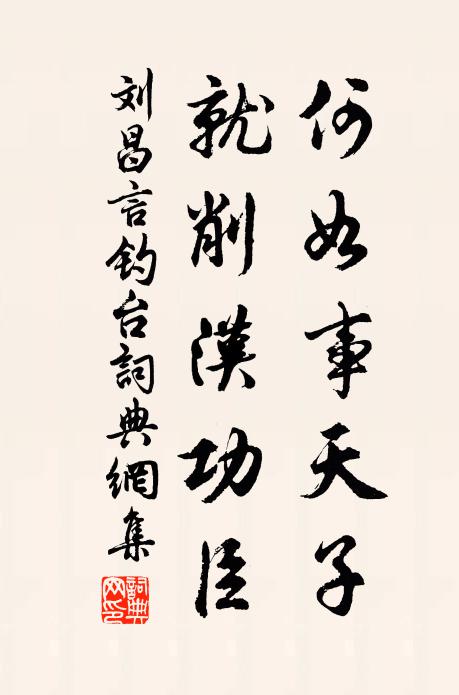 何如事天子
就削漢功臣
刘昌言钓台詞典網集
詞典网印